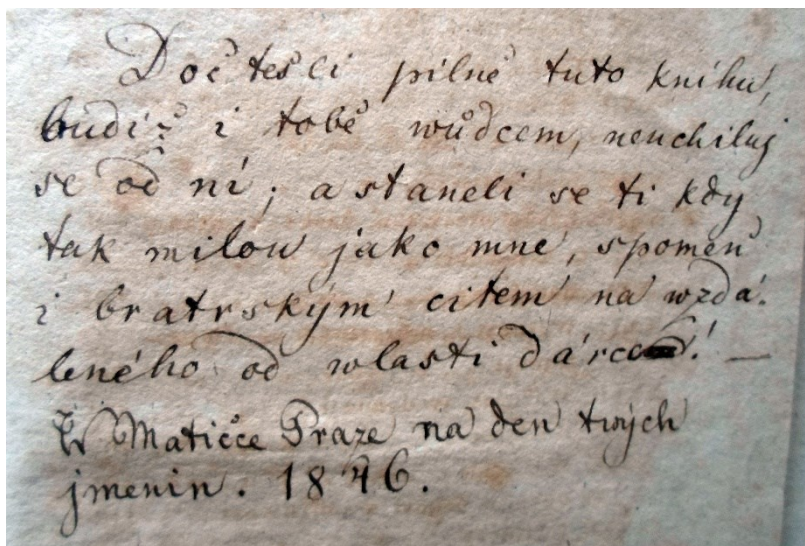 Dočtešli pilně tuto knihu,
budiž i tobě wůdcem, neuchiluj
se od ní; a staneli se ti kdy
tak milou jako mně, spomeň
i bratrským citem na wzdá-
leného od wlasti dárce!—
W Matičce Praze na den twých
jmenin. 1846.